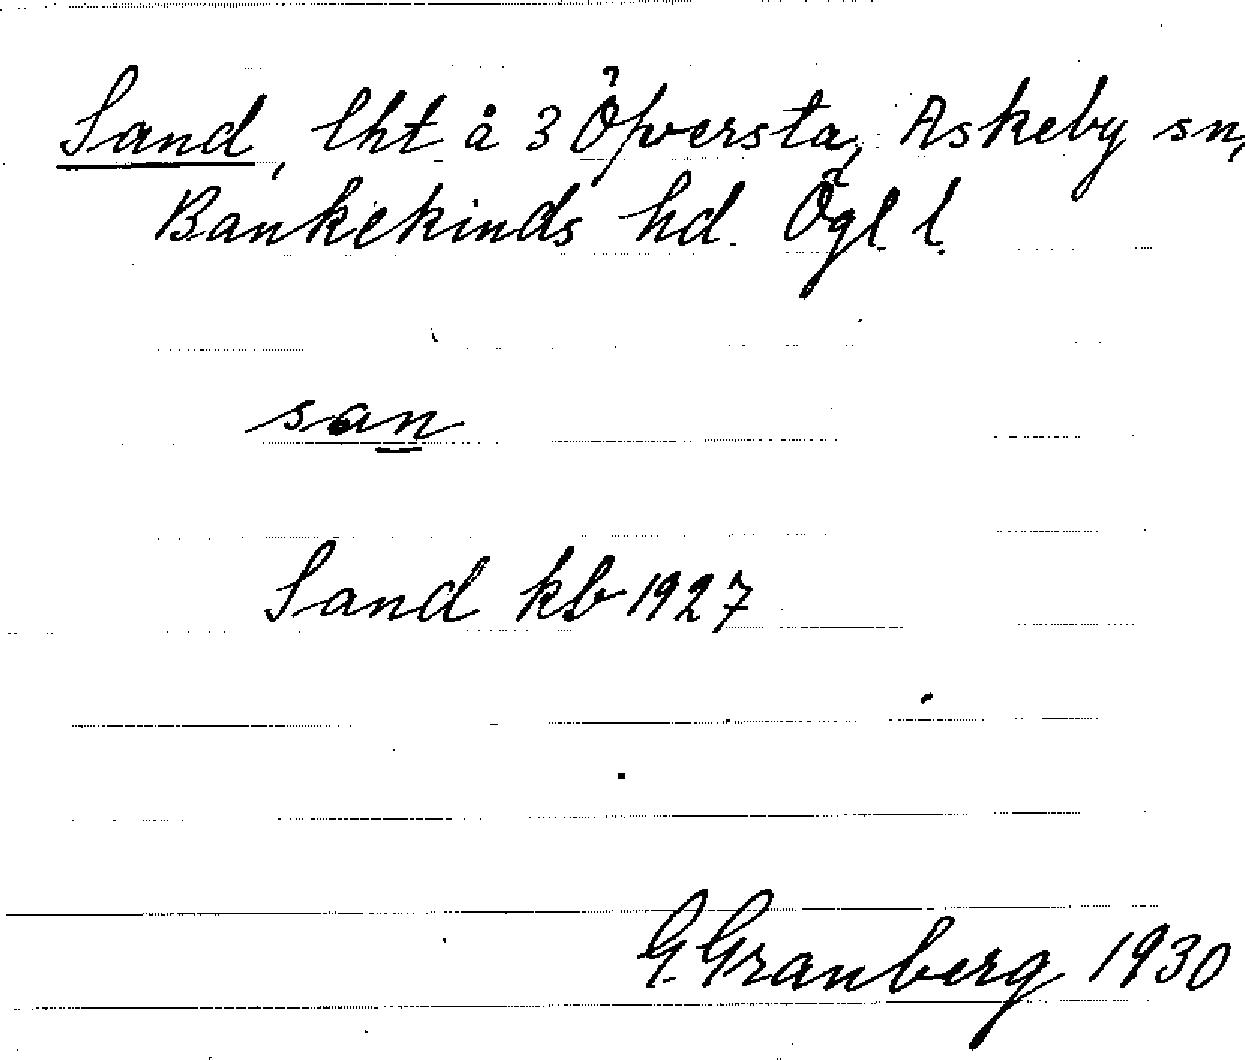 Sand, lht å 3 Öfversta, Askeby sn,
Bankekinds hd. Ögl. l.
san
Sand kb 1927
G. Granberg 1930